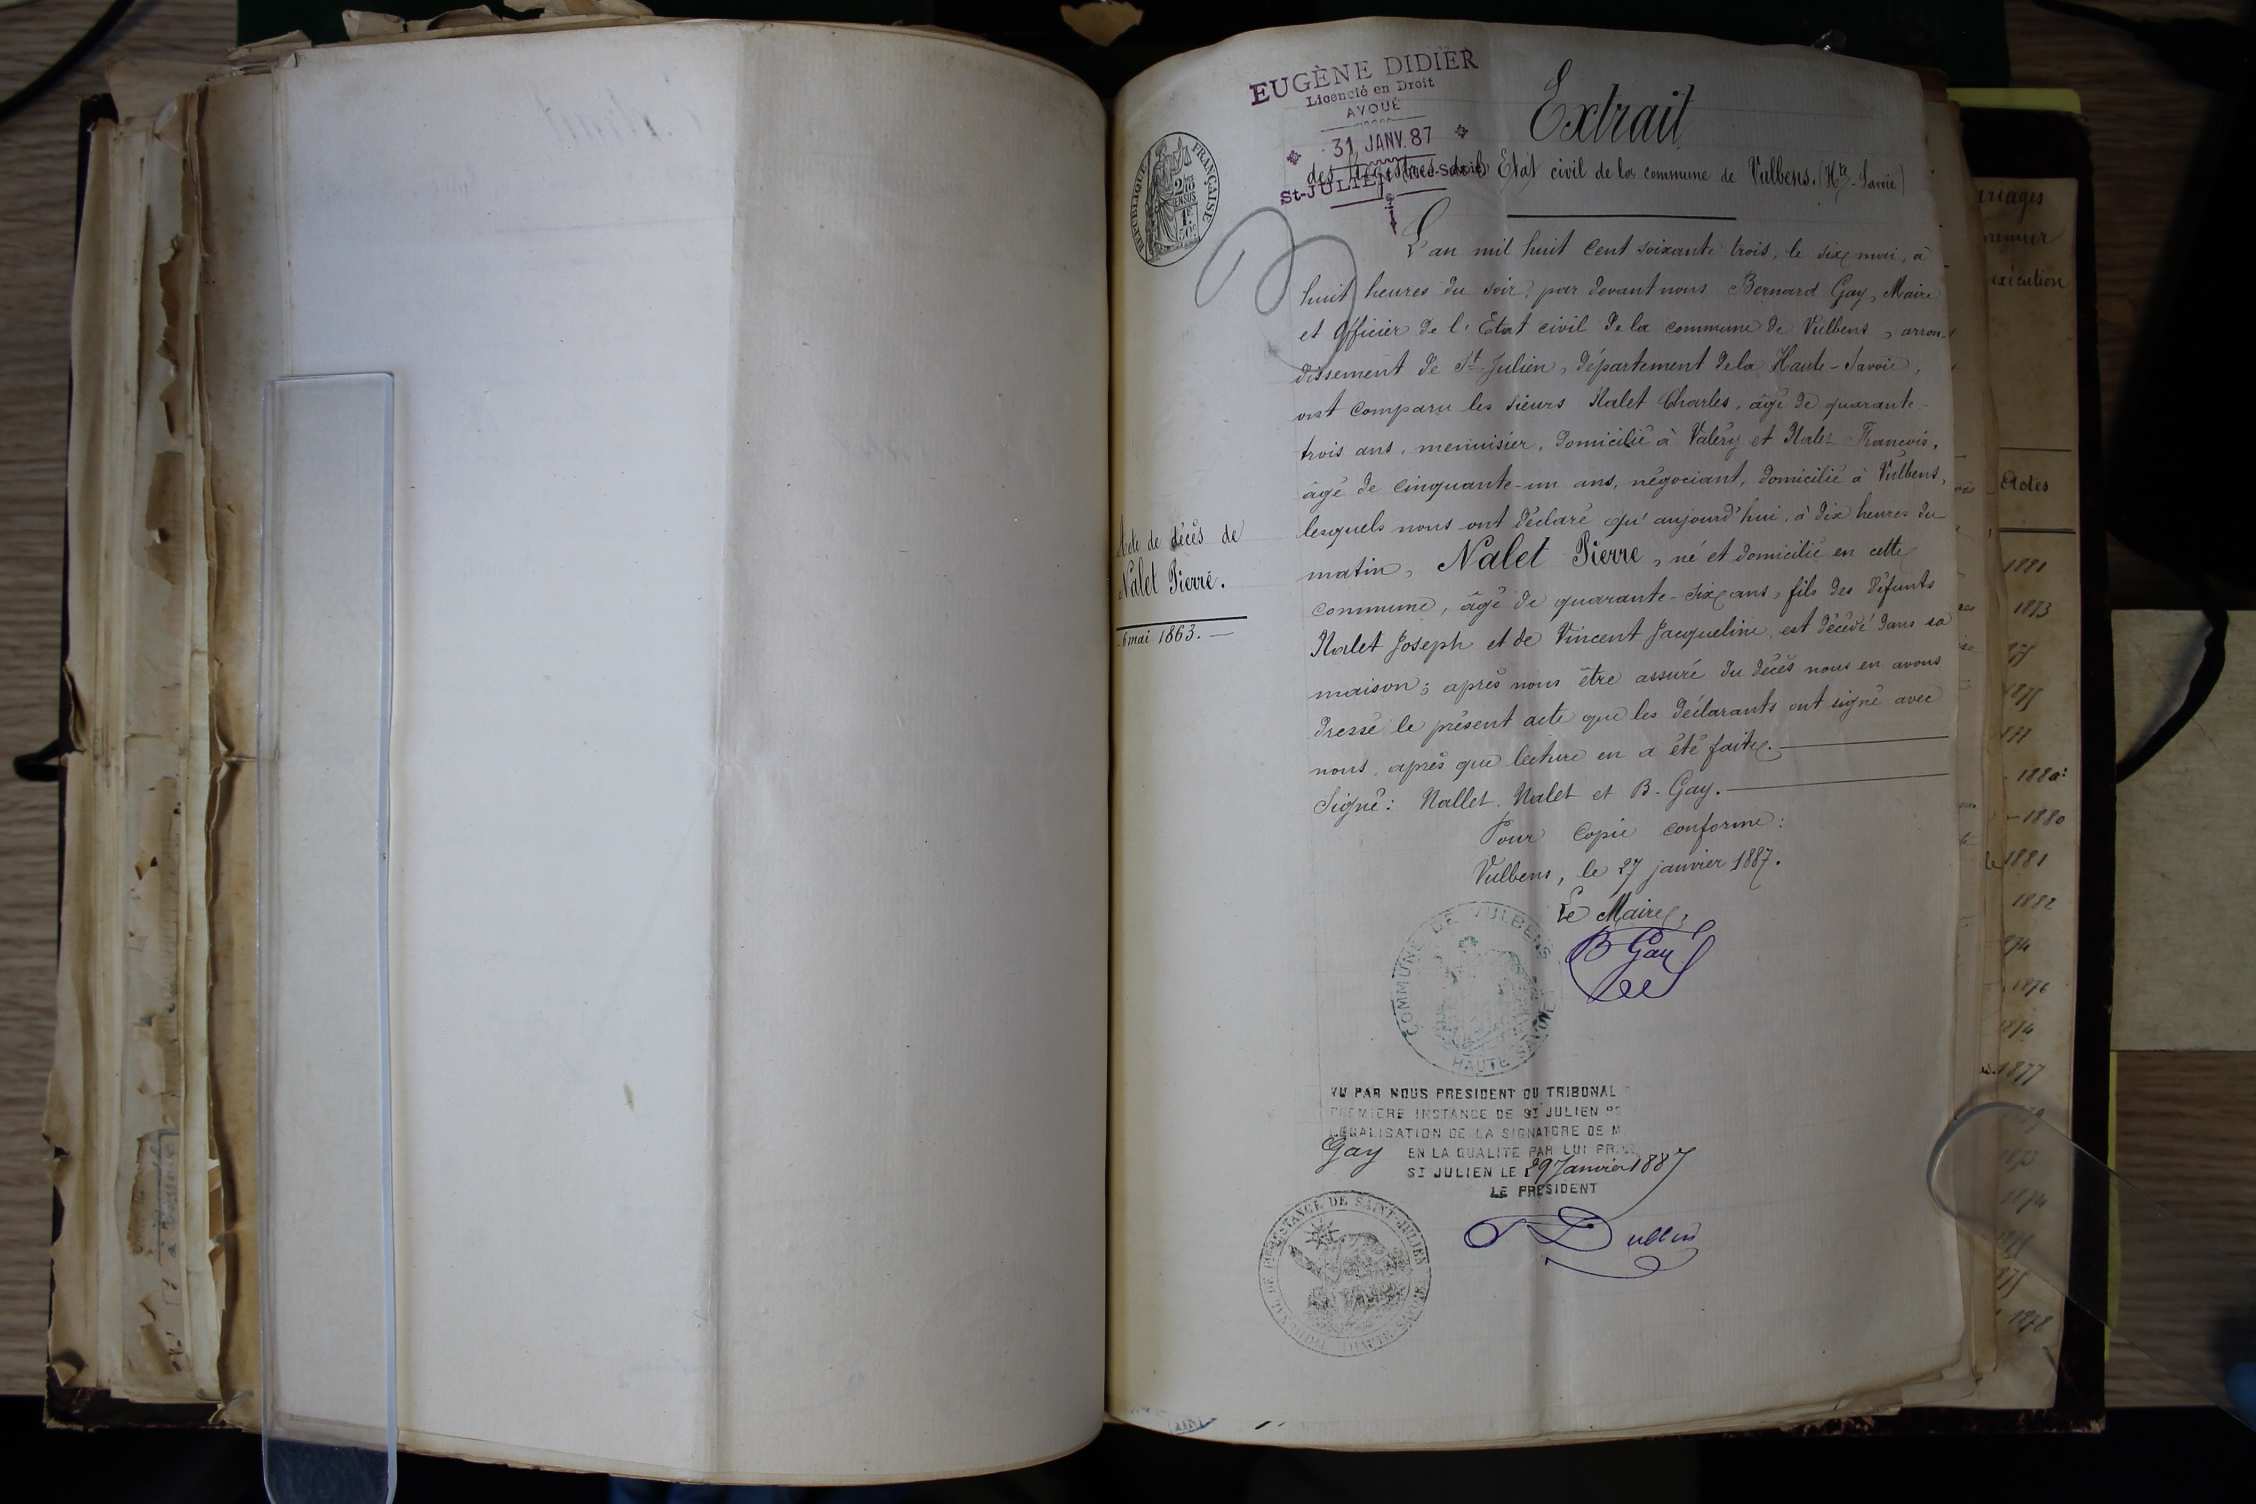 EUGÈNE DIDIER
Licencié en Droit
AVOUÉ
31 JANV. 87
St-JULIEN (Hte-Savoie)
RÉPUBLIQUE FRANÇAISE
2/10 EN SUS
1F 50c
Extrait
des Registres de l'Etat civil de la commune de Vulbens. (Hte-Savoie)
L'an mil huit cent soixante trois, le six mai, à
huit heures du soir, par devant nous Bernard Gay, Maire
et Officier de l'Etat civil de la commune de Vulbens, arron-
dissement de St Julien, département de la Haute-Savoie,
ont comparu les sieurs Nalet Charles, âgé de quarante-
trois ans, menuisier, domicilié à Valéry et Nalet François,
âgé de cinquante-un ans, négociant, domicilié à Vulbens,
lesquels nous ont déclaré qu'aujourd'hui, à dix heures du
matin, Nalet Pierre, né et domicilié en cette
commune, âgé de quarante-six ans, fils des défunts
Nalet Joseph et de Vincent Jacqueline, est décédé dans sa
maison; après nous être assuré du décès nous en avons
dressé le présent acte que les déclarants ont signé avec
nous, après que lecture en a été faite.
Signé: Nallet. Nalet et B. Gay.
Pour copie conforme:
Vulbens, le 27 janvier 1887.
Le Maire,
B Gay
Acte de décès de
Nalet Pierre.
6 mai 1863.
COMMUNE DE VULBENS
HAUTE SAVOIE
VU PAR NOUS PRESIDENT DU TRIBUNAL
PREMIERE INSTANCE DE ST JULIEN PR
LEGALISATION DE LA SIGNATURE DE M
Gay EN LA QUALITE PAR LUI PR
ST JULIEN LE 29 Janvier 1887
LE PRESIDENT
Dullin
INSTANCE DE SAINT-JULIEN
HAUTE SAVOIE
ariages
premier
exécution
Actes
1881
1873
1880
1880
1881
1882
1876
1877
1874
1878